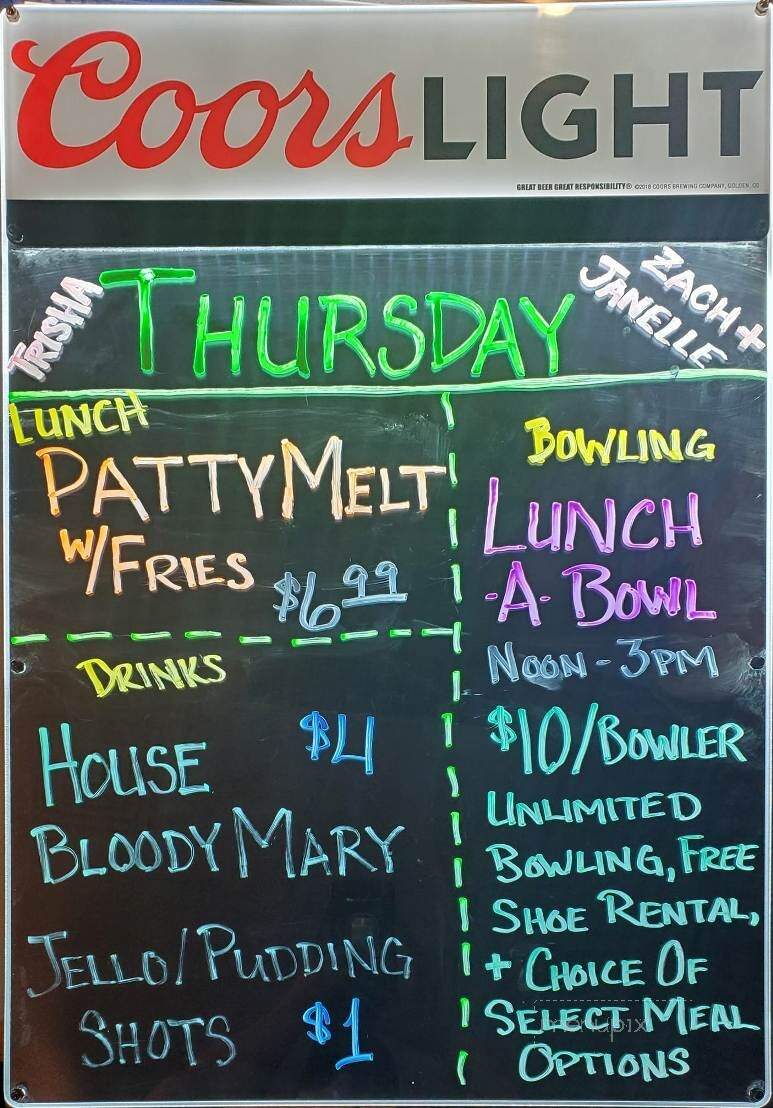 Coors LIGHT
GREAT BEER GREAT RESPONSIBILITY® ©2018 COORS BREWING COMPANY, GOLDEN, CO
TRISHA
THURSDAY
ZACH +
JANELLE
LUNCH
PATTY MELT
W/FRIES $6.99
DRINKS
HOUSE $4
BLOODY MARY
JELLO/PUDDING
SHOTS $1
BOWLING
LUNCH
-A- BOWL
NOON - 3PM
$10/BOWLER
UNLIMITED
BOWLING, FREE
SHOE RENTAL,
+ CHOICE OF
SELECT MEAL
OPTIONS
menupix